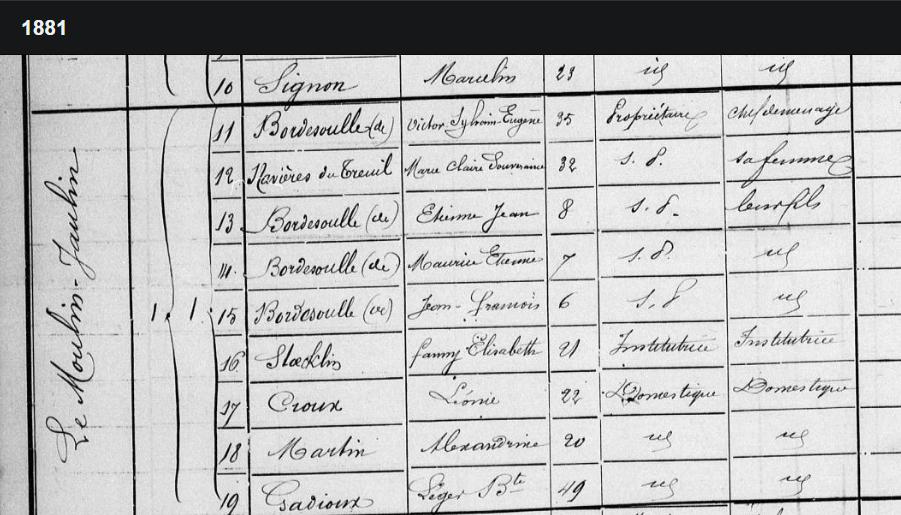 1881
10 Signon Marcelin 23 id id
Le Moulin-Jaulin
1 1
11 Bordesoulle (de) Victor Sylvain Eugène 35 Propriétaire chef de ménage
12 Ravières du Treuil Marie Claire Souveraine 32 s. p. sa femme
13 Bordesoulle (de) Etienne Jean 8 s. p. leur fils
14 Bordesoulle (de) Maurice Etienne 7 s. p. id
15 Bordesoulle (de) Jean-François 6 s. p. id
16 Stœcklin Fanny Elisabeth 21 Institutrice Institutrice
17 Croux Léonie 22 Domestique Domestique
18 Martin Alexandrine 20 id id
19 Gadioux Léger Bte 49 id id